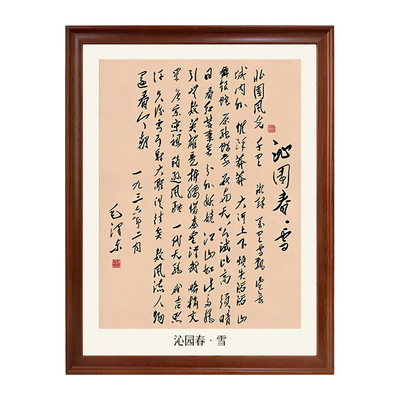 沁園春·雪
北國風光 千里冰封 萬里雪飄 望長
城內外 惟餘莽莽 大河上下 頓失滔滔 山
舞銀蛇 原馳蠟象 欲與天公試比高 須晴
日 看紅裝素裹 分外妖嬈 江山如此多嬌
引無數英雄競折腰 惜秦皇漢武 略輸文
采 唐宗宋祖 稍遜風騷 一代天驕 成吉思
汗 只識彎弓射大雕 俱往矣 數風流人物
還看今朝
一九三六年二月
毛澤東
沁园春·雪